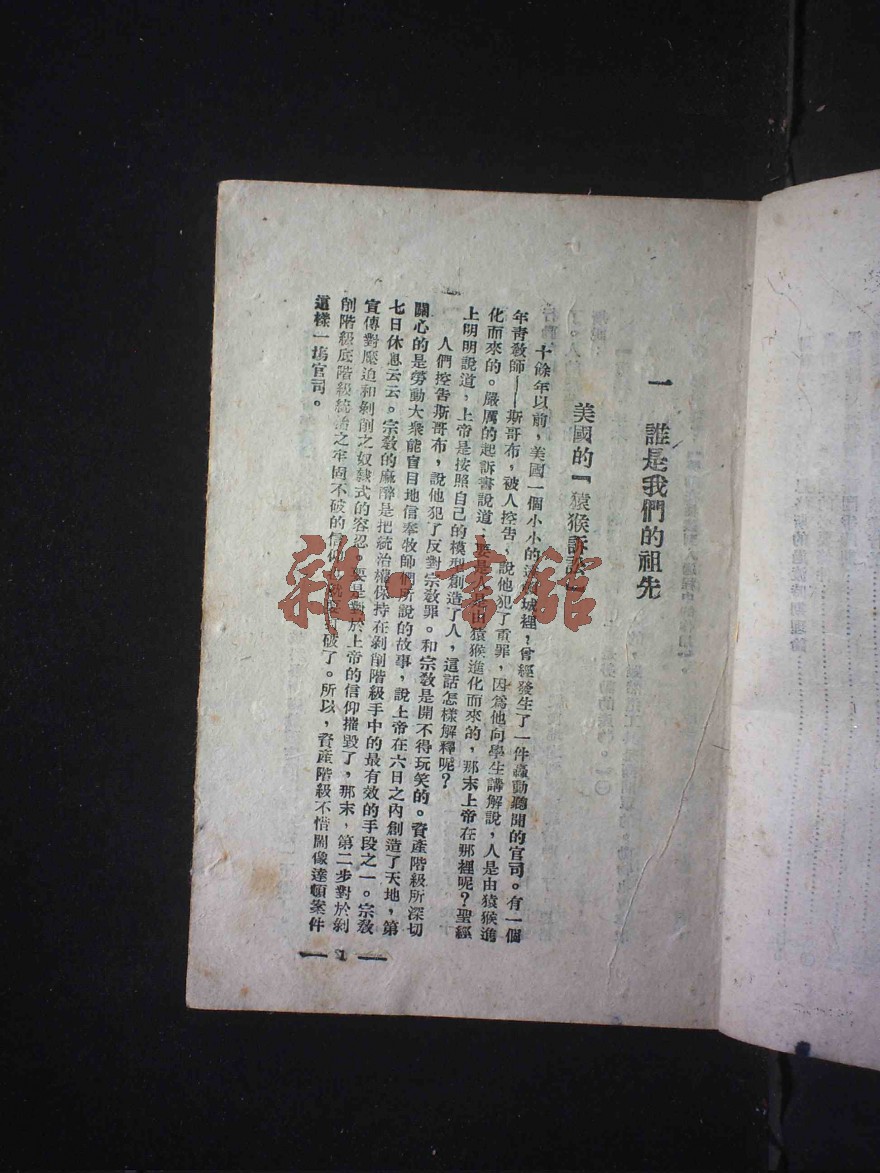 一 誰是我們的祖先
美國的『猿猴訴訟』
十餘年以前，美國一個小小的達頓城裡，曾經發生了一件轟動聽聞的官司。有一個
年青教師——斯哥布，被人控告，說他犯了重罪，因爲他向學生講解說，人是由猿猴進
化而來的。嚴厲的起訴書說道：要是人是由猿猴進化而來的，那末上帝在那裡呢？聖經
上明明說道，上帝是按照自己的模型創造了人，這話怎樣解釋呢？
人們控告斯哥布，說他犯了反對宗敎罪。和宗敎是開不得玩笑的。資產階級所深切
關心的是勞動大衆能盲目地信奉牧師們所說的故事，說上帝在六日之內創造了天地，第
七日休息云云。宗敎的麻醉是把統治權保持在剝削階級手中的最有效的手段之一。宗敎
宣傳對壓迫和剝削之奴隸式的容忍。要是對於上帝的信仰摧毀了，那末，第二步對於剝
削階級底階級統治之牢固不破的信仰 破了。所以，資產階級不惜鬧像達頓案件
這樣一塲官司。
— 1 —
雜·書館